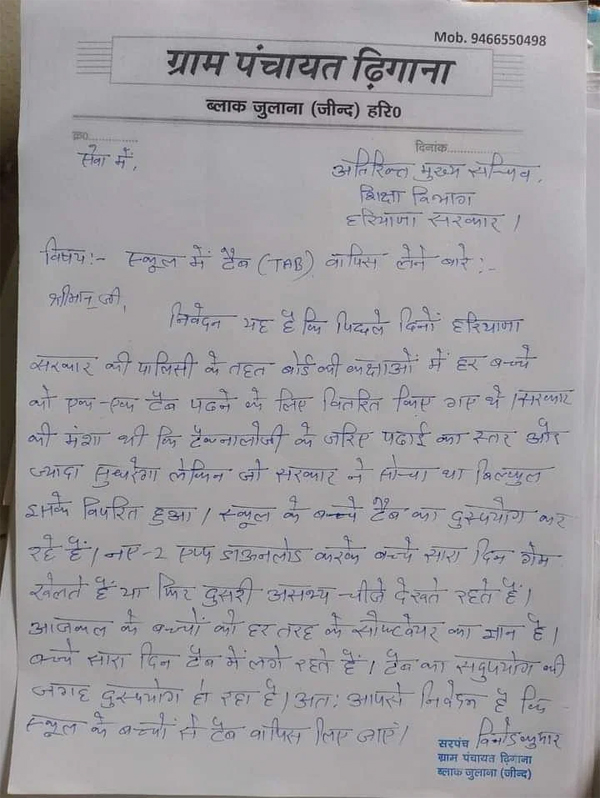 Mob. 9466550498
ग्राम पंचायत ढ़िगाना
ब्लाक जुलाना (जीन्द) हरि0
क्र0............
दिनांक............
सेवा में,
अतिरिक्त मुख्य सचिव,
शिक्षा विभाग
हरियाणा सरकार।
विषय:- स्कूल में टैब (TAB) वापिस लेने बारे:-
श्रीमान जी,
निवेदन यह है कि पिछले दिनों हरियाणा
सरकार की पालिसी के तहत बोर्ड की कक्षाओं में हर बच्चे
को एक-एक टैब पढने के लिए वितरित किए गए थे। सरकार
की मंशा थी कि टैक्नालोजी के जरिए पढाई का स्तर और
ज्यादा सुधरेगा लेकिन जो सरकार ने सोचा था बिल्कुल
इसके विपरित हुआ। स्कूल के बच्चे टैब का दुरुपयोग कर
रहे हैं। नए-2 एप्प डाऊनलोड करके बच्चे सारा दिन गेम
खेलते हैं या फिर दुसरी असभ्य चीजे देखते रहते हैं।
आजकल के बच्चों को हर तरह के सौफ्टवेयर का ज्ञान है।
बच्चे सारा दिन टैब में लगे रहते हैं। टैब का सदुपयोग की
जगह दुरुपयोग हो रहा है। अत: आपसे निवेदन है कि
स्कूल के बच्चों से टैब वापिस लिए जाएं।
सरपंच विनोद कुमार
ग्राम पंचायत ढ़िगाना
ब्लाक जुलाना (जीन्द)